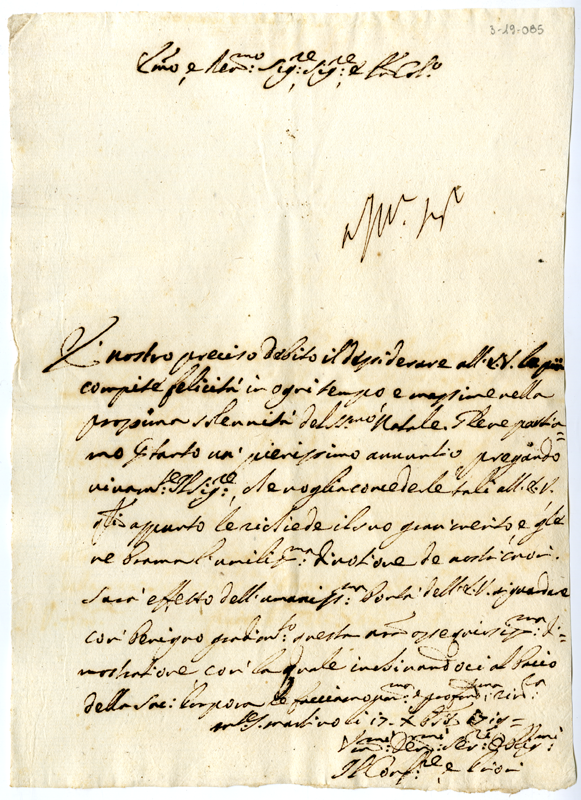 3-19-085
Em̃o, e Rev.mo Sig.re Sig.re e P͞ron Col.o
È nostro preciso debito il desiderare all'E.V. le più
compite felicità in ogni tempo e massime nella
prossima solennità del S.mo Natale. Glene portia-
mo pertanto un' pienissimo annuntio pregando
vivam.te Il Sig.re, che voglia concederle tali all'E.V.
quali appunto le richiede il suo gran merito e gle
ne brama l'humiliss.ma divotione de nostri cuori.
Sarà effetto dell'umaniss.ma bontà dell'E.V. riguardare
con' benigno gradim.to questa n͞ra ossequiosiss.ma di-
mostratione con la quale inchinandoci al bacio
della Sac: Porpora le facciamo prof.ma river.za
S. Martino li 17. Xbre
Um.mi Dev.mi Ser.ri Oblig.mi
Il Conf.re e Priori